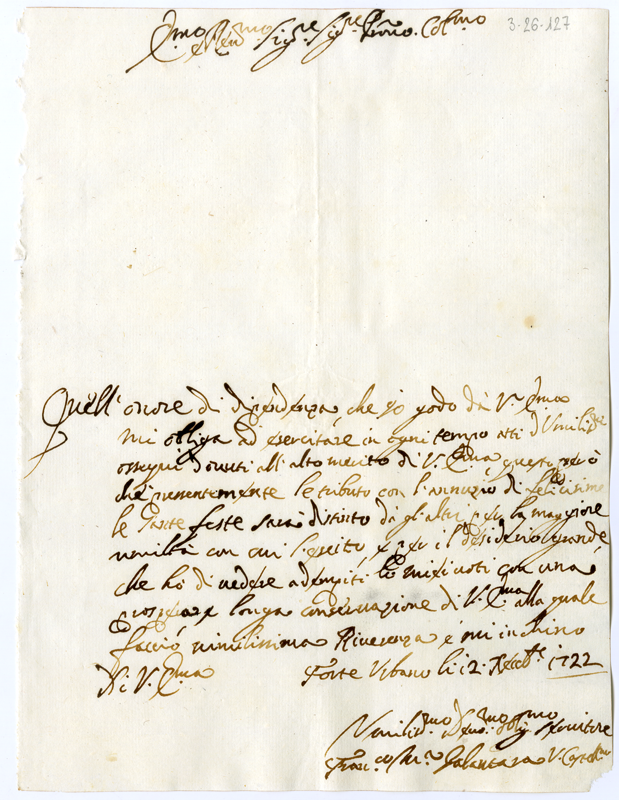 3-26-127
E.mo e Rev.mo Sig.re Sig.re P.ron Col.mo
Quell' onore di dipendenza che jo godo dà V.ra Em.a
mi obliga ad esercitare in ogni tempo atti d'Umilis.me
ossequi dovuti all'alto merito di V. Em.a questo però
che presentemente le tributo con l'annuzio di felicissime
le Sante feste sarà distinto dà gl'altri per la maggiore
umiltà con cui l'esercito, e per il desiderio grande
che hò di vedere adempiti li miei voti con una
prospera e longa conservazione di V. Em.a alla quale
faccio umilissima Riverenza e mi inchino
Di V. Em.a Forte Urbano li 12. Xecb.re 1722
Umilis.mo Dev.mo Oblig.mo Servitore
Fran.co M.a Galantara V. Castell.no